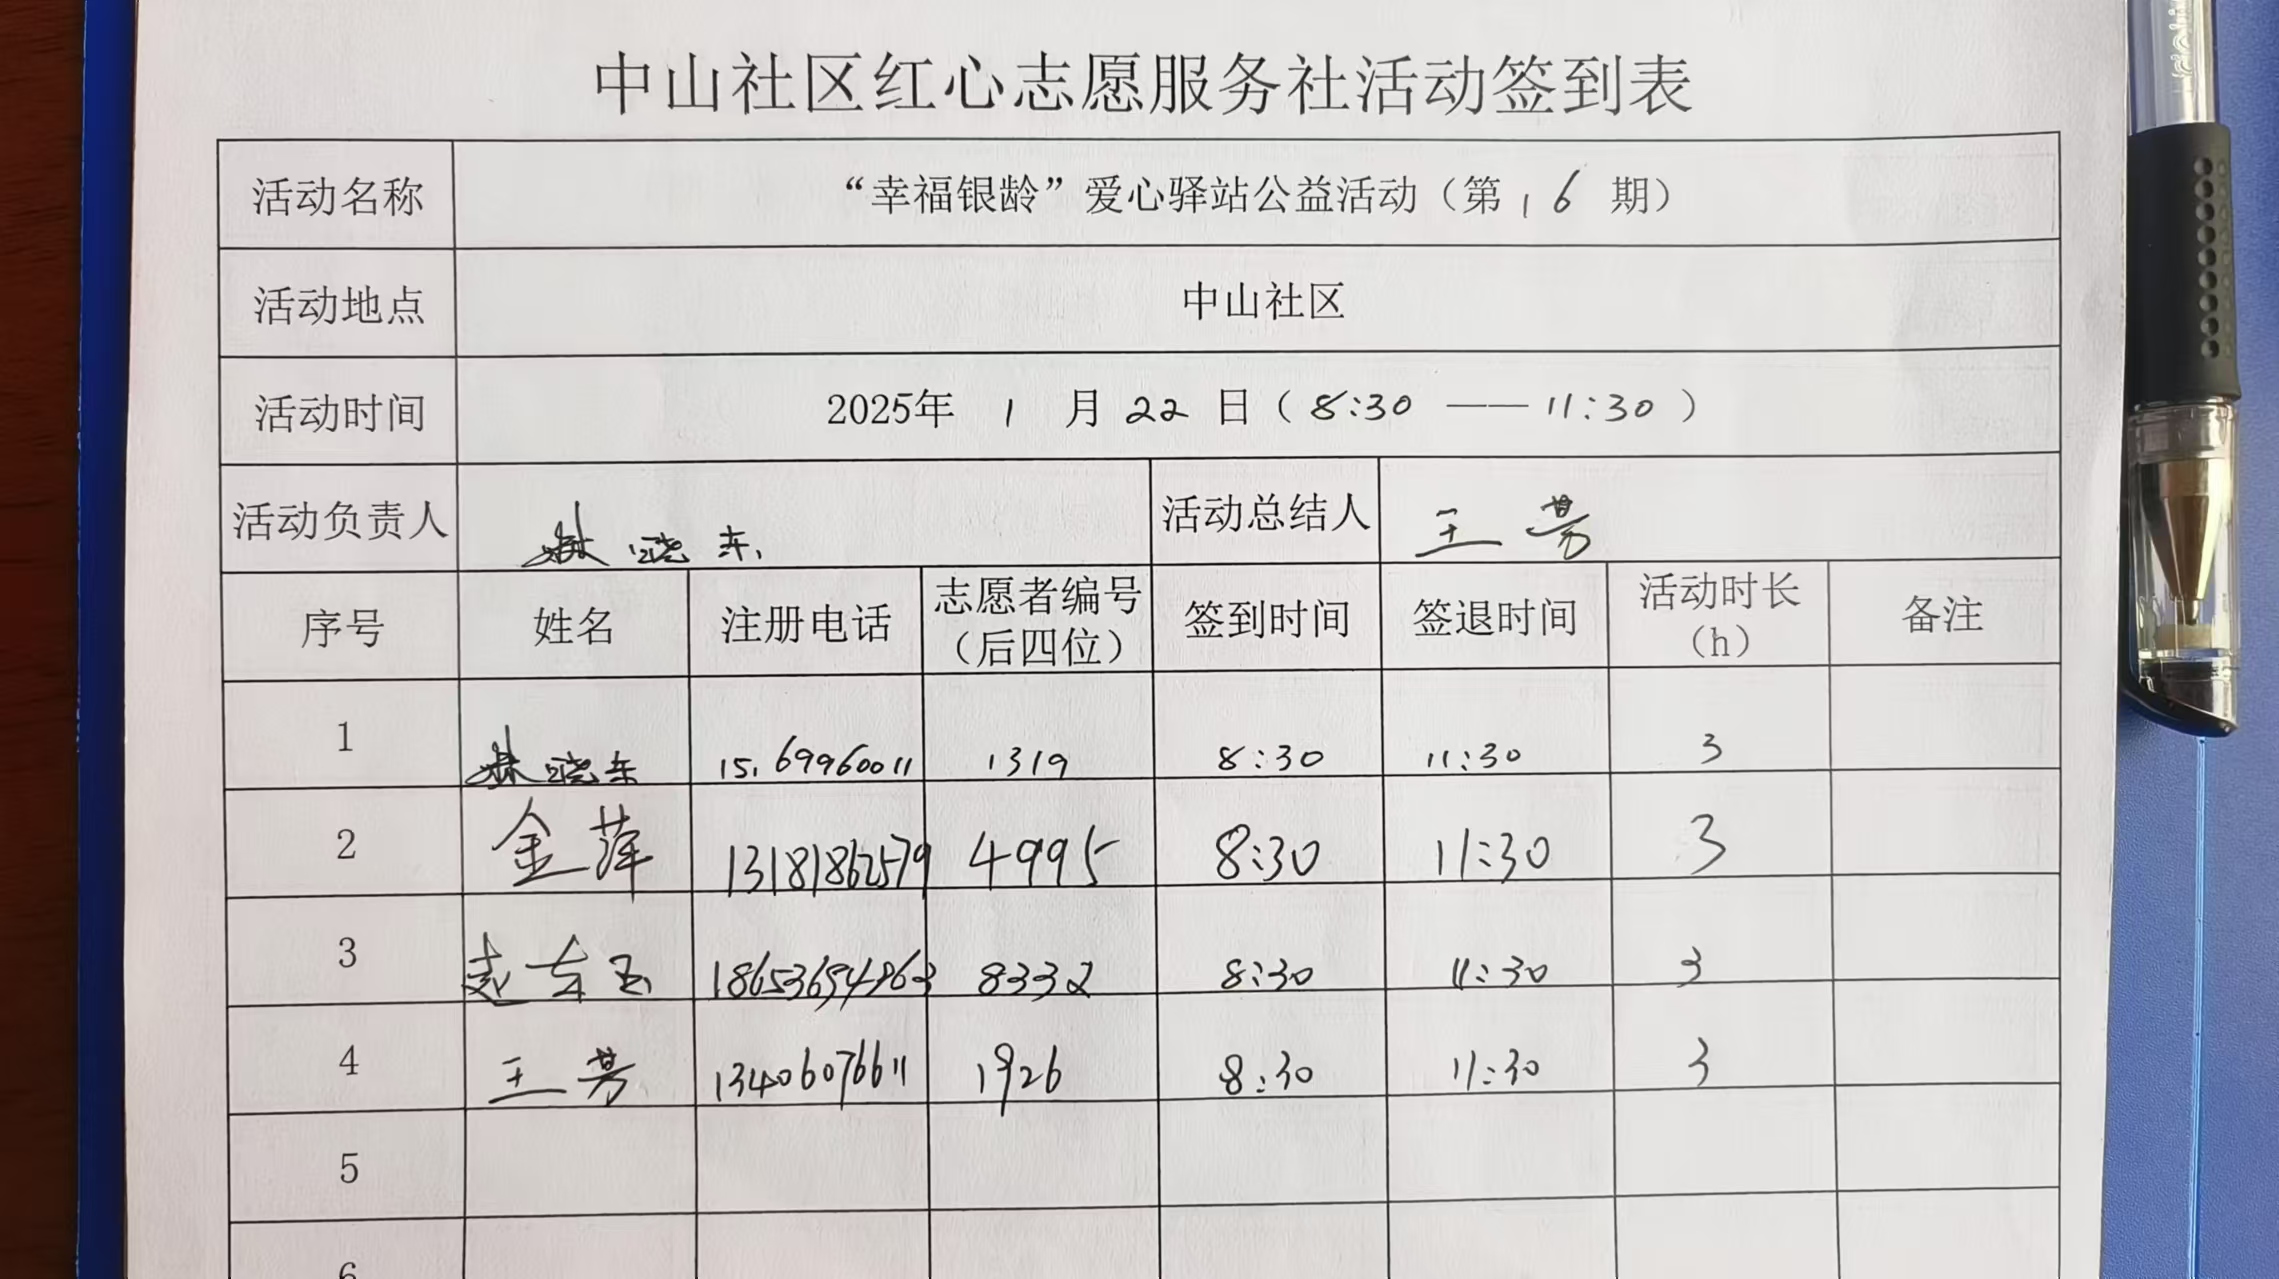 中山社区红心志愿服务社活动签到表
活动名称 “幸福银龄”爱心驿站公益活动（第 16 期）
活动地点 中山社区
活动时间 2025年 1 月 22 日（8:30 —— 11:30）
活动负责人 林晓东 活动总结人 王芳
序号 姓名 注册电话 志愿者编号（后四位） 签到时间 签退时间 活动时长（h） 备注
1 林晓东 15169960011 1319 8:30 11:30 3
2 金萍 13181862579 4995 8:30 11:30 3
3 赵东玉 18653694963 8332 8:30 11:30 3
4 王芳 13406076611 1926 8:30 11:30 3
5
6